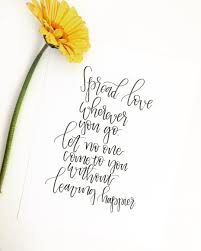 Spread love
wherever
you go
let no one
come to you
without
leaving happier